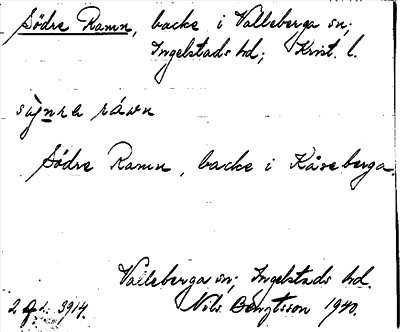 Södre Ramn, backe i Valleberga sn;
Ingelstads hd; Krist. l.
Södre Ramn, backe i Kåseberga.
Valleberga sn; Ingelstads hd.
2 3914. Nils Bengtsson 1940.